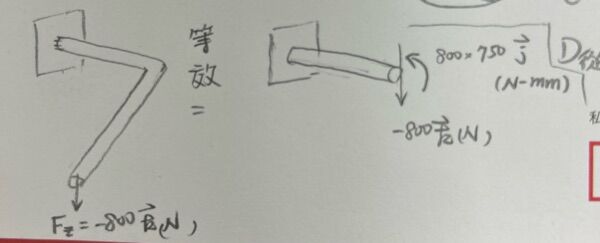 等效=
F_z = -800 k⃗ (N)
800×750 j⃗
(N-mm)
-800 k⃗ (N)
D